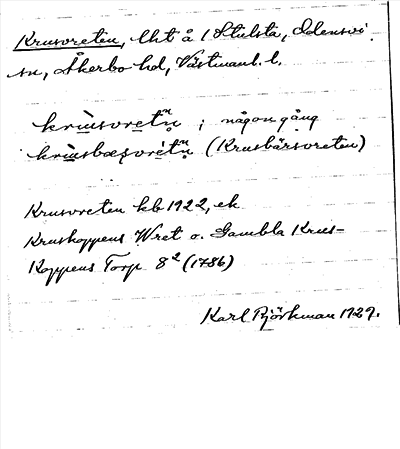 Krusvreten, lht å 1 Stulsta, Odensvi
sn, Åkerbo hd, Västmanl. l.
krùsvretn̥ ; någon gång
krùsbæṣvrétn̥ (Krusbärsvreten)
Krusvreten kb 1922, ek
Kruskoppens Wret o. Gambla Krus-
Koppens Torp 8² (1786)
Karl Björkman 1929.